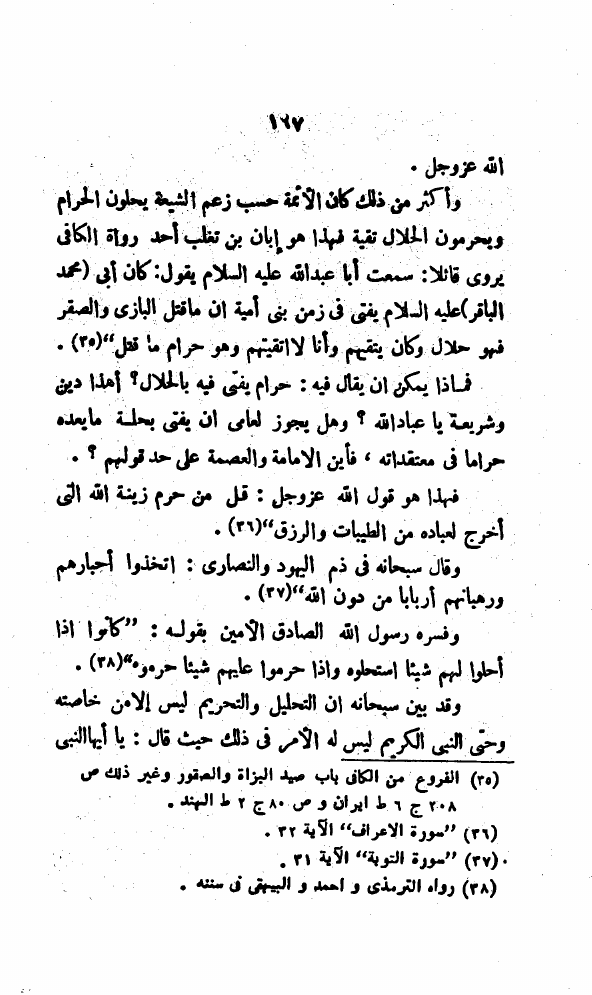 ١٦٧
الله عزوجل .
وأكثر من ذلك كان الأئمة حسب زعم الشيعة يحلون الحرام
ويحرمون الحلال تقية فهذا هو إبان بن تغلب أحد رواة الكافى
يروى قائلا: سمعت أبا عبدالله عليه السلام يقول: كان أبى (محمد
الباقر)عليه السلام يفتى فى زمن بنى أمية ان ماقتل البازى والصقر
فهو حلال وكان يتقيهم وأنا لااتقيتهم وهو حرام ما قتل“(٣٥) .
فماذا يمكن ان يقال فيه : حرام يفتى فيه بالحلال؟ أهذا دين
وشريعة يا عبادالله ؟ وهل يجوز لعامى ان يفتى بحلة مايعده
حراما فى معتقداته ، فأين الامامة والعصمة على حد قولهم ؟ .
فهذا هو قول الله عزوجل : قل من حرم زينة الله التى
أخرج لعباده من الطيبات والرزق“(٣٦) .
وقال سبحانه فى ذم اليهود والنصارى : اتخذوا أحبارهم
ورهبانهم أربابا من دون الله“(٣٧) .
وفسره رسول الله الصادق الأمين بقوله : ”كانوا اذا
أحلوا لهم شيئا استحلوه واذا حرموا عليهم شيئا حرموه“(٣٨) .
وقد بين سبحانه ان التحليل والتحريم ليس إلامن خاصته
وحتى النبى الكريم ليس له الأمر فى ذلك حيث قال : يا أيهاالنبى
(٣٥) الفروع من الكافى باب صيد البزاة والصقور وغير ذلك ص
٢٠٨ ج ٦ ط ايران و ص ٨٠ ج ٢ ط الهند .
(٣٦) ”سورة الاعراف“ الآية ٣٢ .
(٣٧) ”سورة التوبة“ الآية ٣١ .
(٣٨) رواه الترمذى و احمد و البيهقى فى سننه .